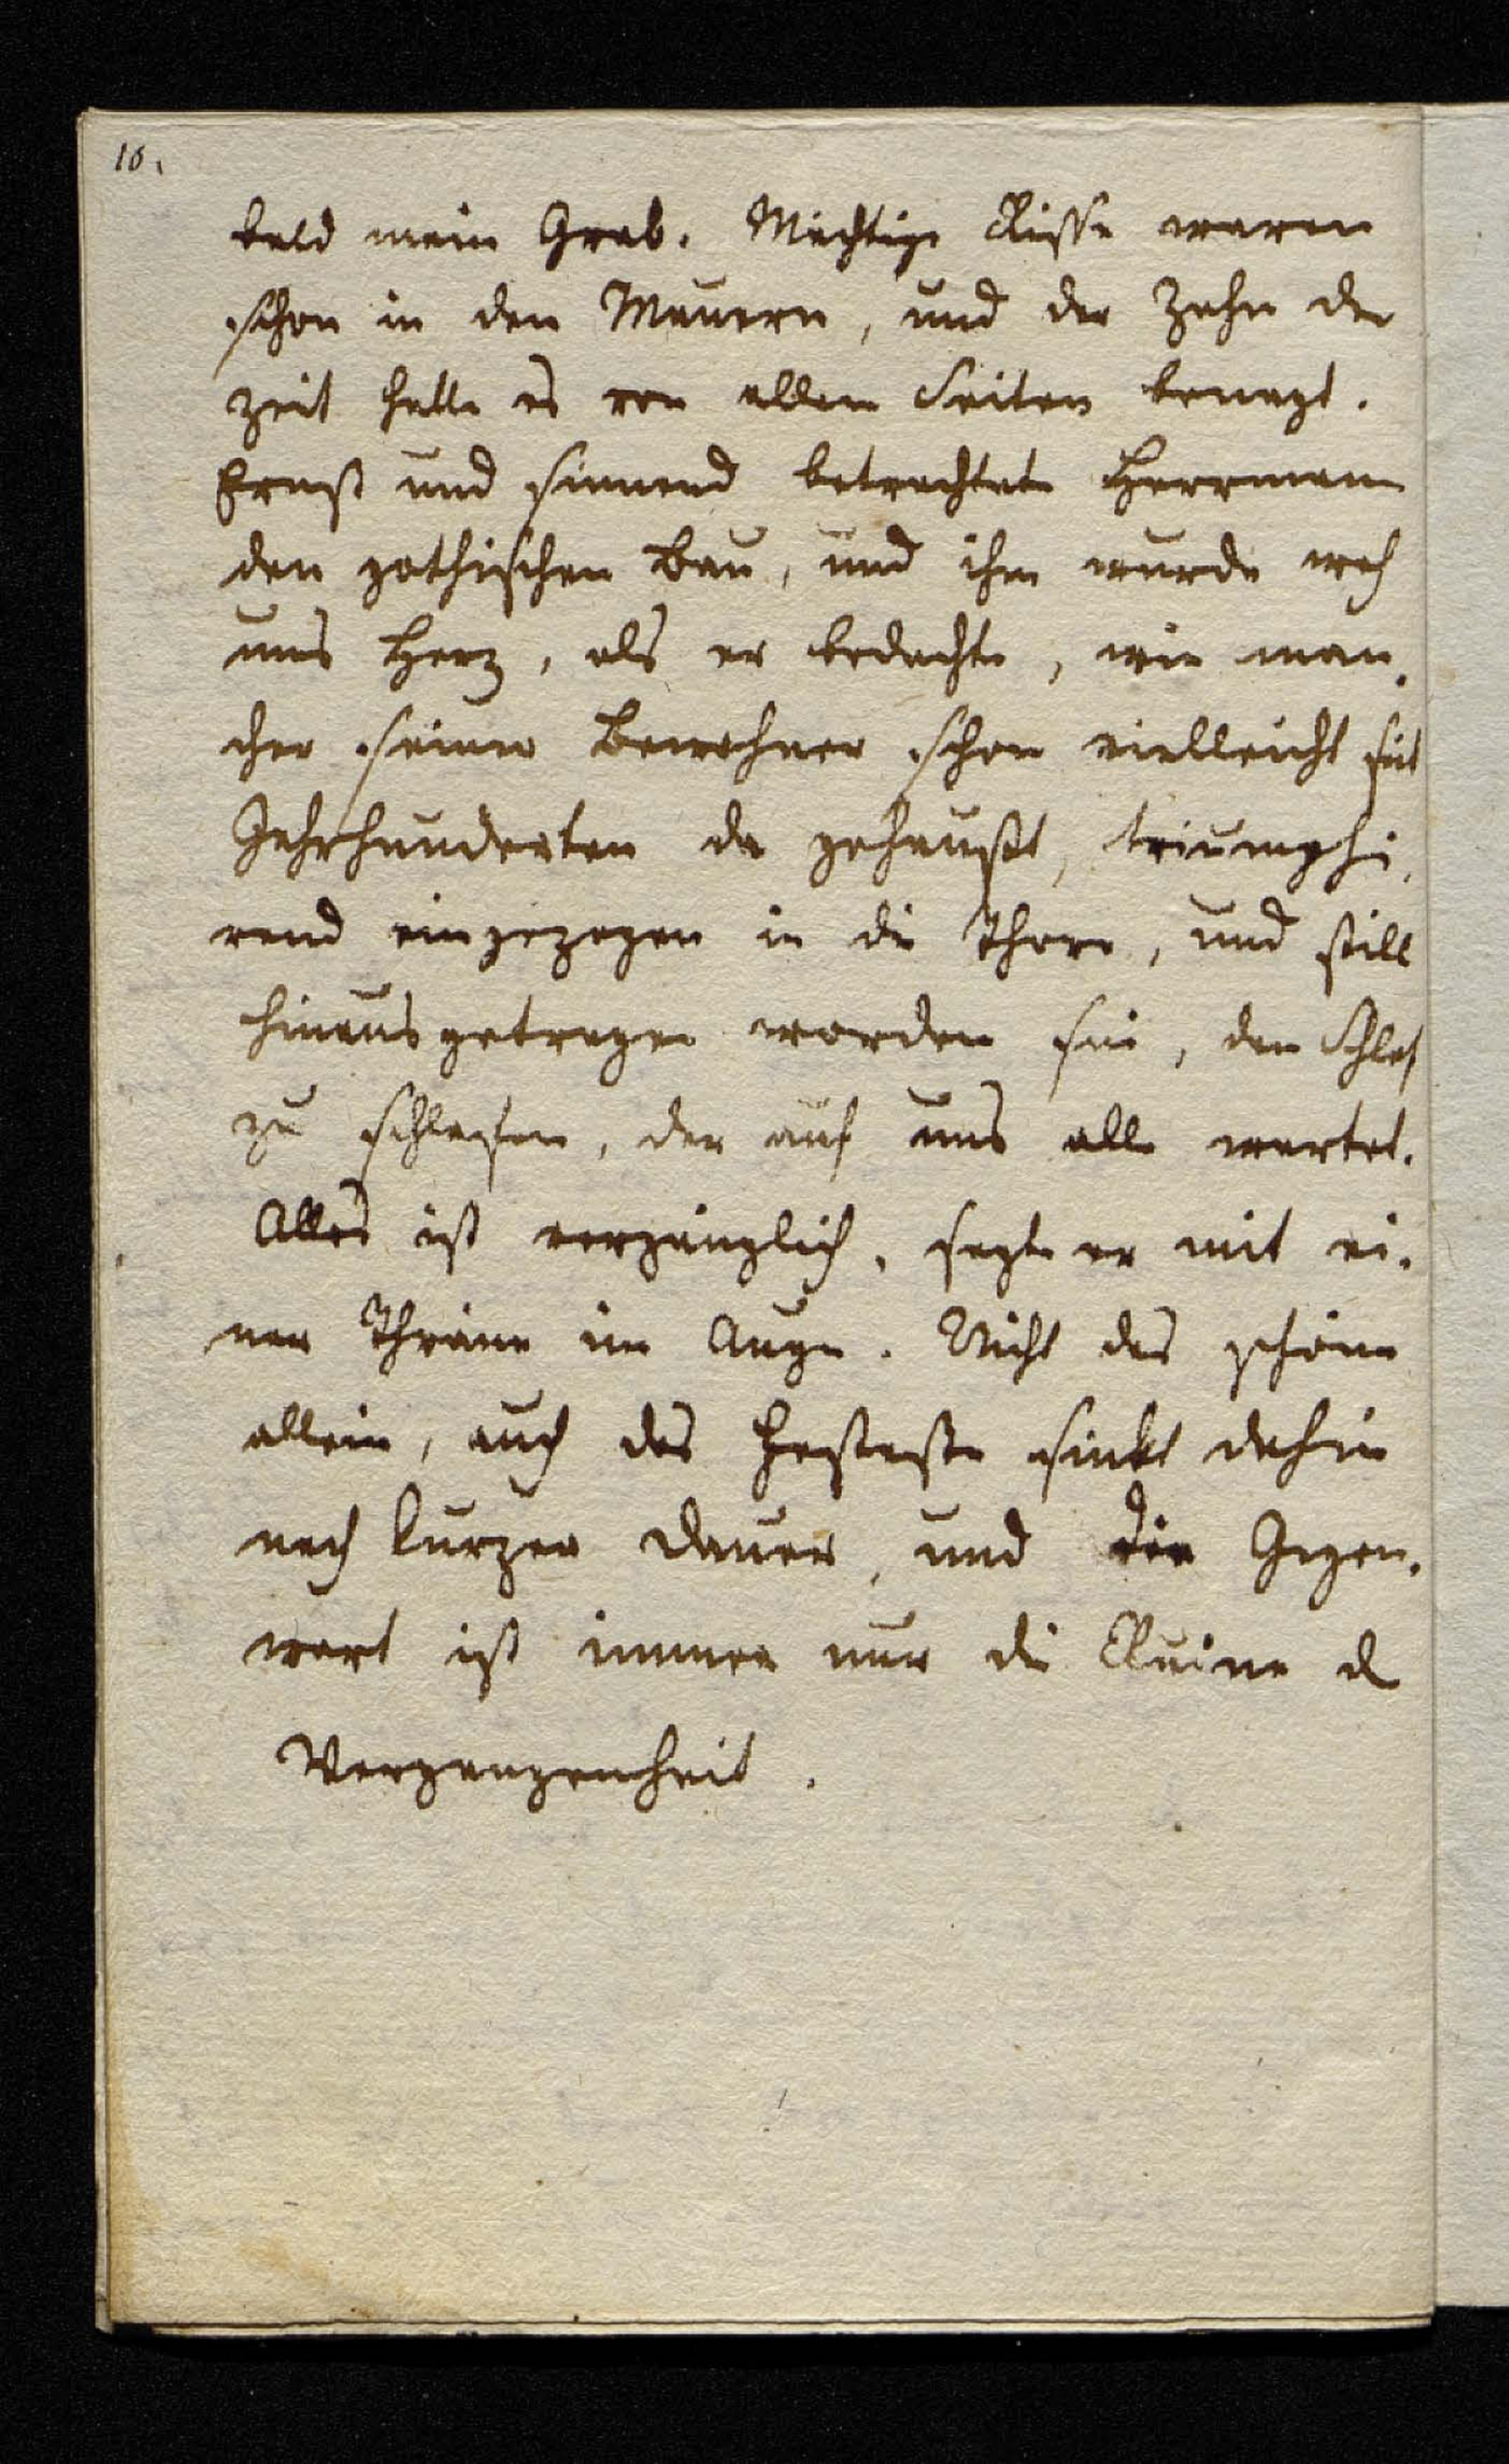 16.
bald mein Grab. Mächtige Risse waren
schon in den Mauern, und der Zahn der
Zeit hatte es von allen Seiten benagt.
Ernst und sinnend betrachtete Herrmann
den gothischen Bau, und ihm wurde weh
ums Herz, als er bedachte, wie man-
cher seiner Bewohner schon vielleicht seit
Jahrhunderten da gehaußt, triumphi-
rend eingezogen in die Thore, und still
hinausgetragen worden sei, den Schlaf
zu schlafen, der auf uns alle wartet.
Alles ist vergänglich, sagte er mit ei-
ner Thräne im Auge. Nicht das schöne
allein, auch das Festeste sinkt dahin
nach kurzer Dauer, und die Gegen-
wart ist immer nur die Ruine d
Vergangenheit.